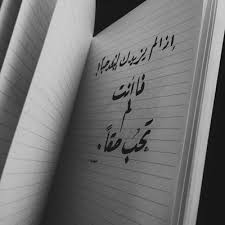 إذا لم يزيدك البعد حبا!
فأنت
لم
تحب حقاً.